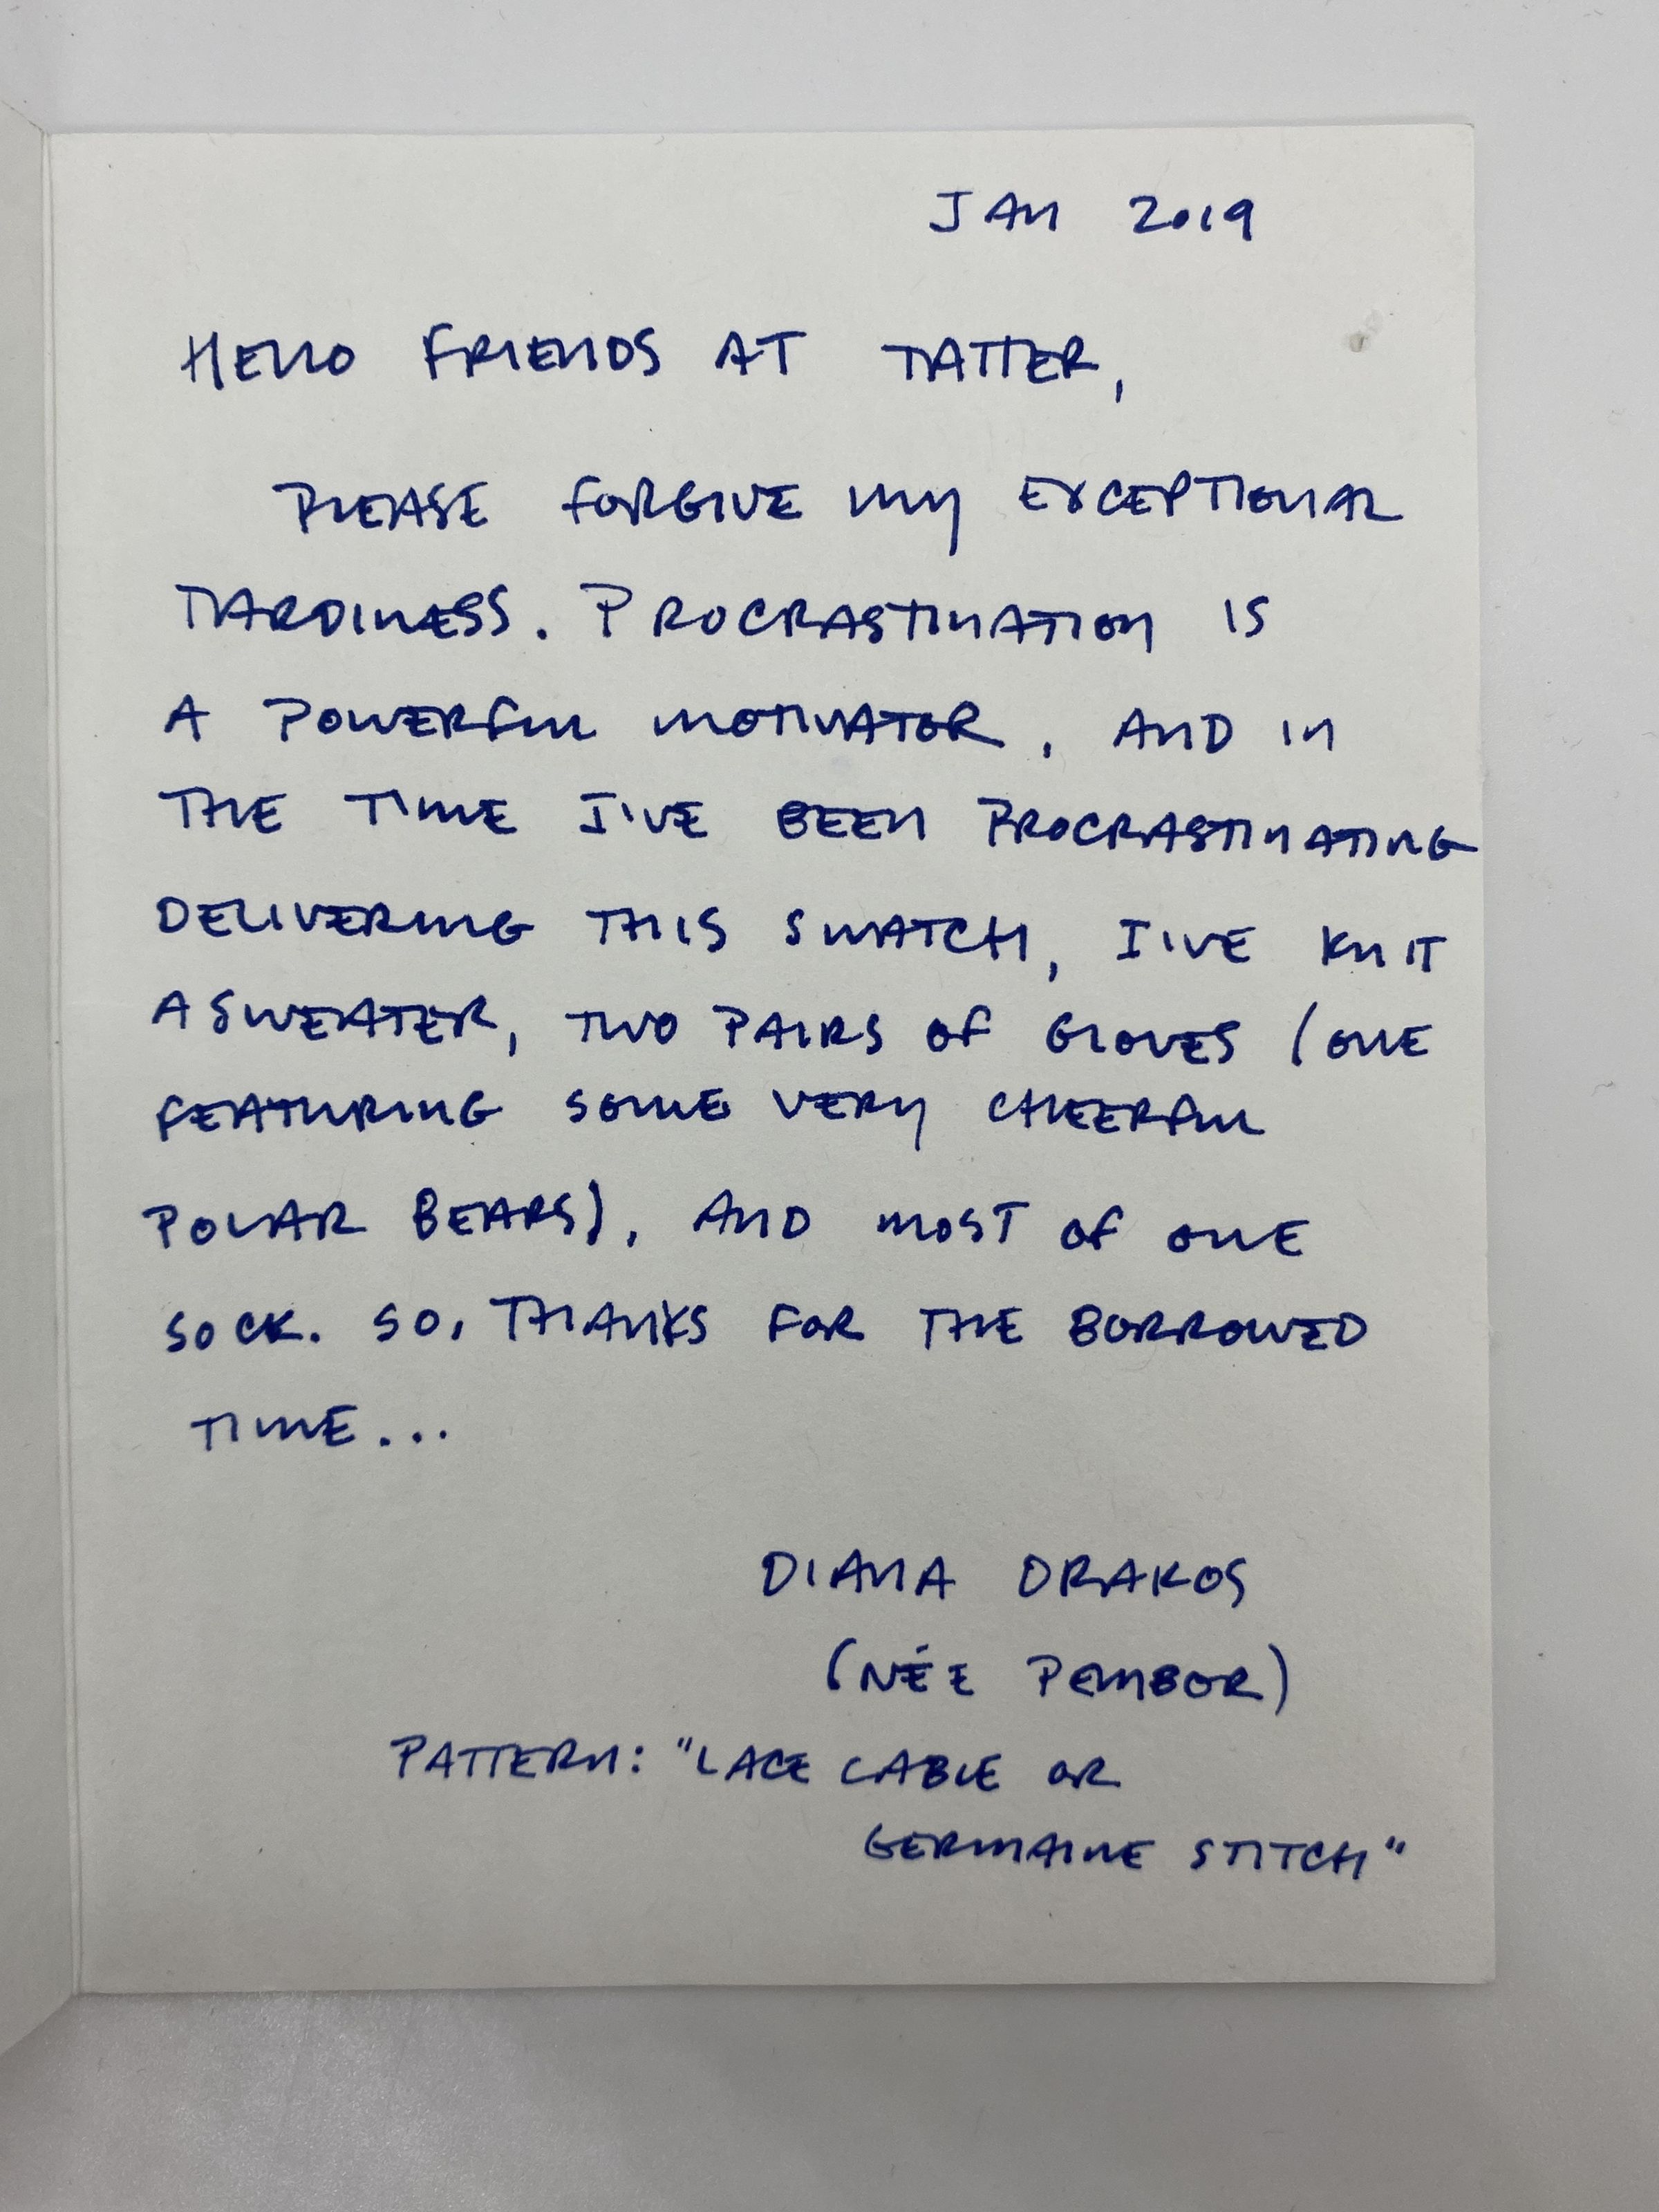 JAN 2019
HELLO FRIENDS AT TATTER,
PLEASE FORGIVE MY EXCEPTIONAL
TARDINESS. PROCRASTINATION IS
A POWERFUL MOTIVATOR, AND IN
THE TIME I'VE BEEN PROCRASTINATING
DELIVERING THIS SWATCH, I'VE KNIT
A SWEATER, TWO PAIRS OF GLOVES (ONE
FEATURING SOME VERY CHEERFUL
POLAR BEARS), AND MOST OF ONE
SOCK. SO, THANKS FOR THE BORROWED
TIME...
DIANA DRAKOS
(NÉE PEMBOR)
PATTERN: "LACE CABLE OR
GERMAINE STITCH"